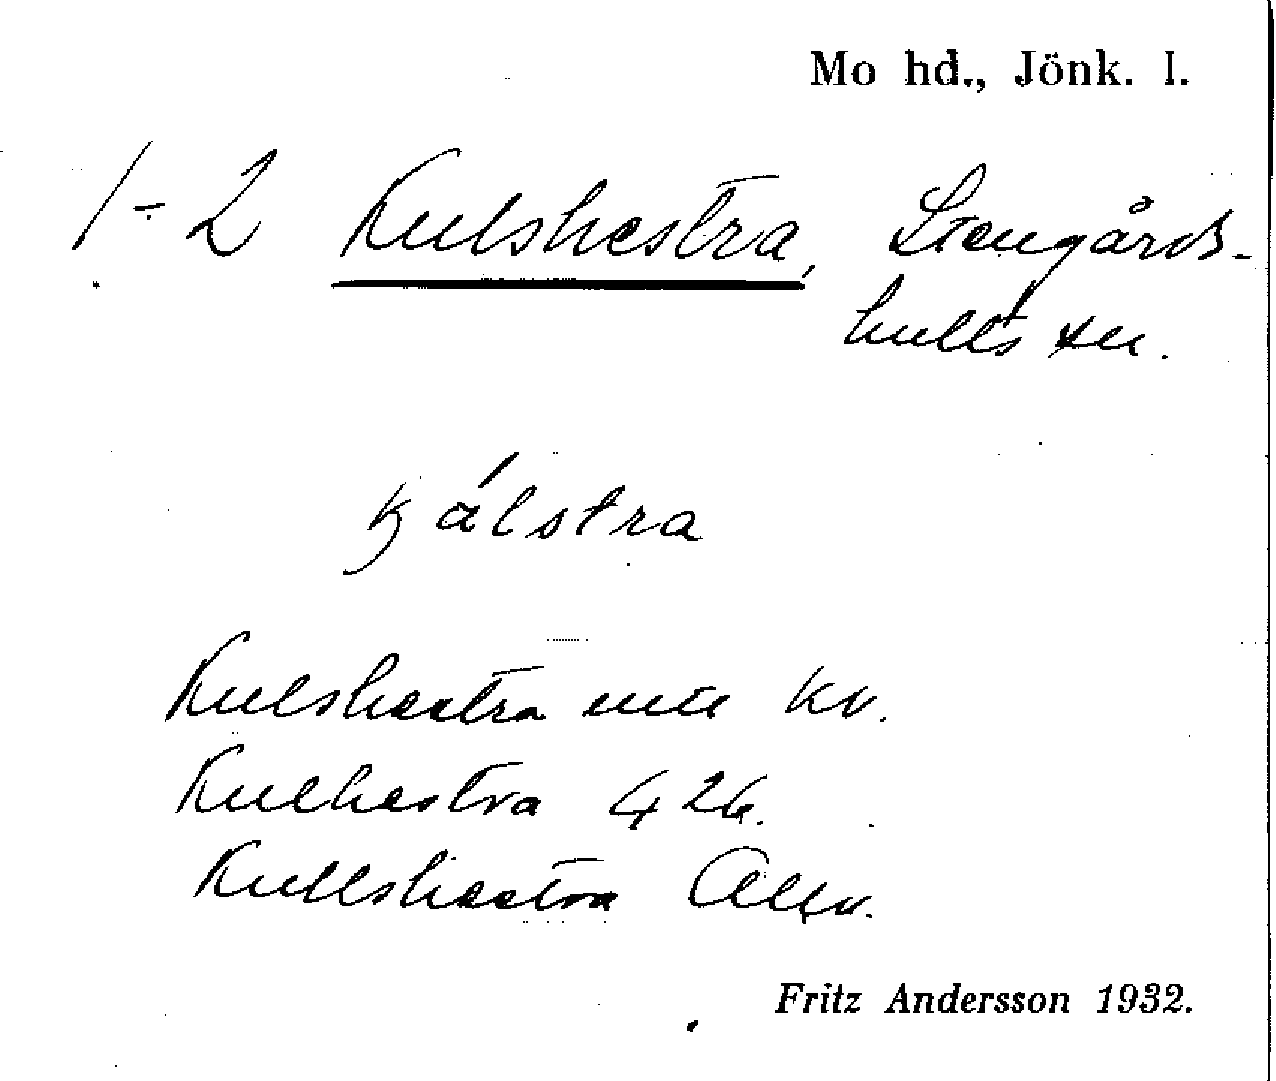 Mo hd., Jönk. l.
1-2 Kulshestra, Stengårds-
hults sn.
kálstra
Kulshestra
Kulhestra 426.
Kullshestra
Fritz Andersson 1932.